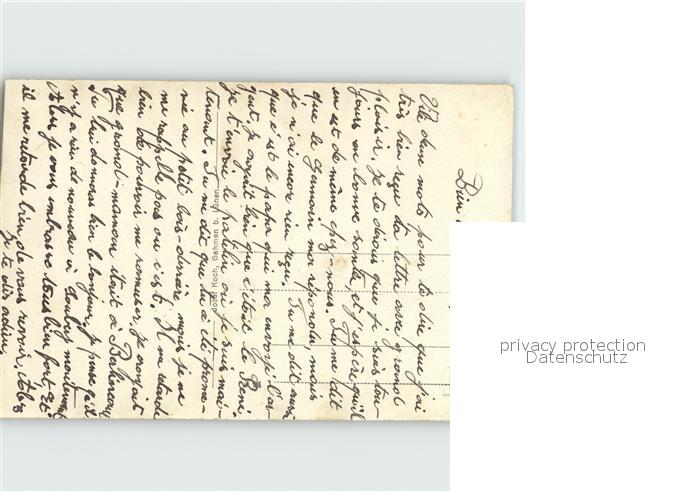 Dim
Vite deux mots pour te dire que j'ai
très bien reçu ta lettre avec grand
plaisir, je te dirais que je suis tou-
jours en bonne santé, et j'espère qu'il
en est de même chez-nous. Tu me dit
que le Germain m'a répondu, mais
je n'ai encore rien reçu. Tu me dit aussi
que c'est le papa qui m'a envoyé l'ar-
gent, je croyait bien que c'était le René.
je t'envoie le patelin où je suis mai-
tenant. Tu me dit que tu a été prome-
née au petit bois-derrière, mais je ne
me rappelle pas ou c'est. Il me retarde
bien de pouvoir me ramener. je croyait
que grand-maman était à
Tu lui donnera bien le bonjour, je pense qu'il
n'y a rien de nouveau à maitenant
je vous embrasse tous bien fort, et
il me retarde bien de vous revoir,
je te dis adieu.
Josef Koch, Gahmen b. Lünen.
privacy protection
Datenschutz